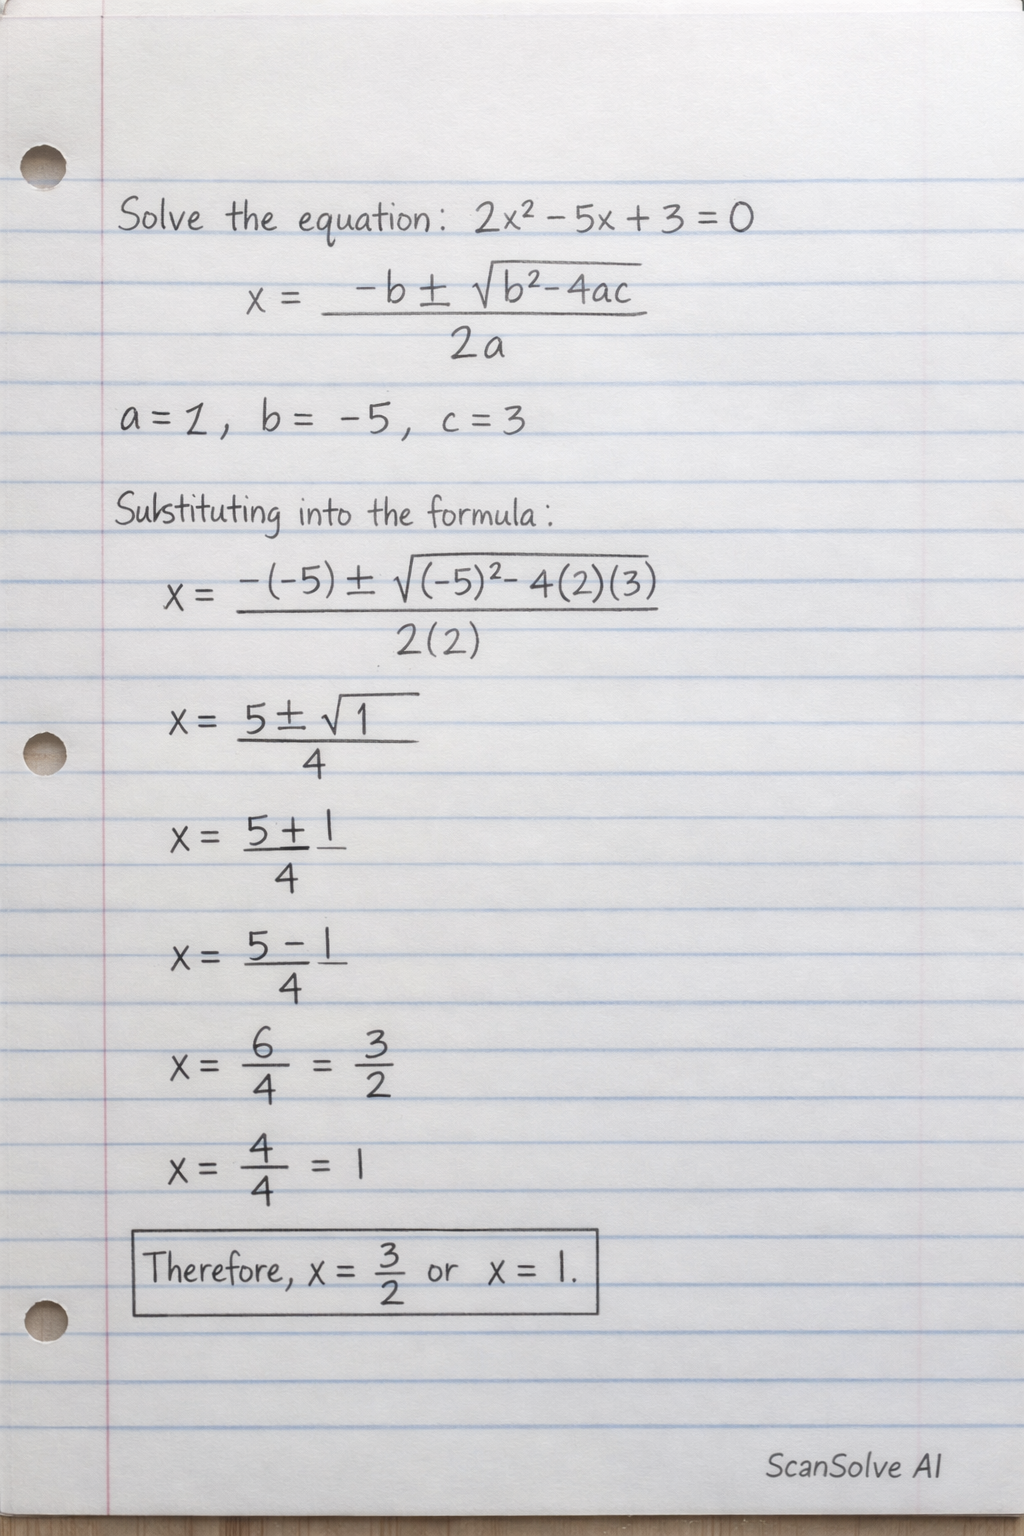 Solve the equation: 2x² - 5x + 3 = 0
x = (-b ± √(b² - 4ac)) / 2a
a = 1, b = -5, c = 3
Substituting into the formula:
x = (-(-5) ± √((-5)² - 4(2)(3))) / 2(2)
x = (5 ± √1) / 4
x = (5 + 1) / 4
x = (5 - 1) / 4
x = 6/4 = 3/2
x = 4/4 = 1
Therefore, x = 3/2 or x = 1.
ScanSolve AI